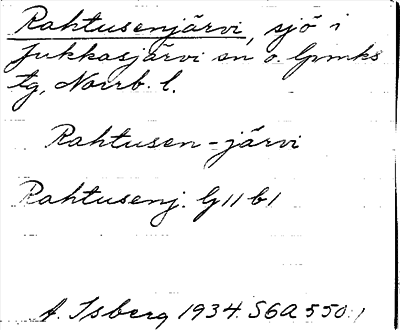 Rahtusenjärvi, sjö i
Jukkasjärvi sn o. lpmks
tg, Norrb. l.
Rahtusen-järvi
Rahtusenj. G 11 b 1
A. Isberg 1934. S6A 550